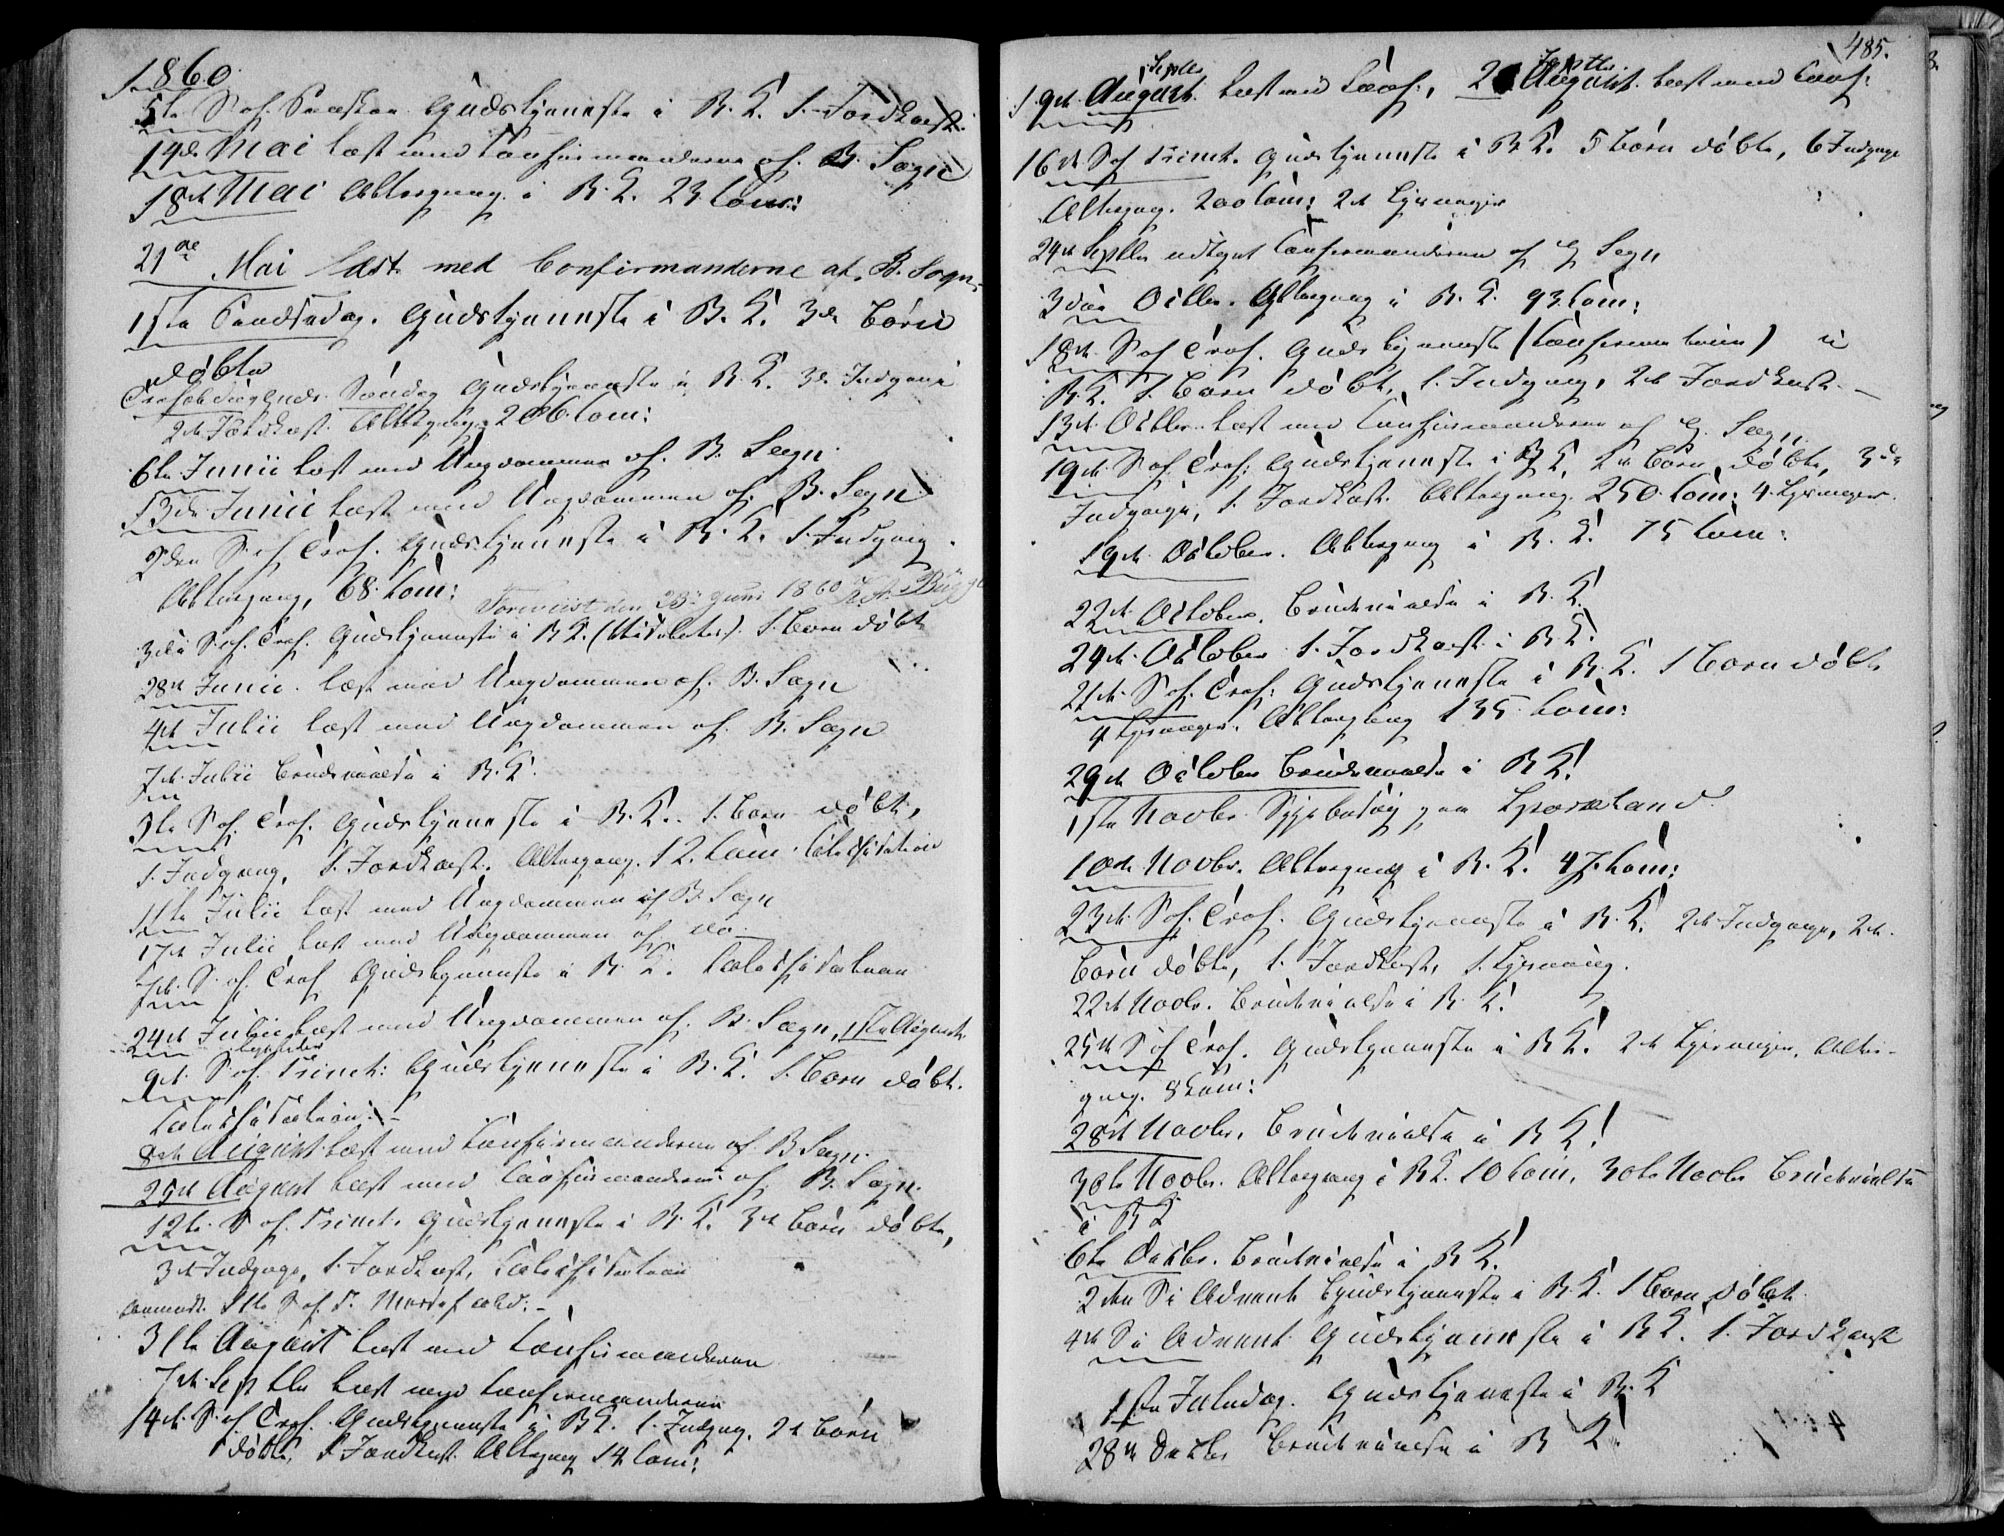 1860.
5te S. ef. Paaske Gudstjeneste i B. K. 1. Jordkast.
14de Mai læst med Confirmanderne af B. Sogn
18de Mai Altergang i B. K. 23 Com:
21de Mai Læst med Confirmanderne af B. Sogn
1ste Pindsedag. Gudstjeneste i B. K. 3de Børn
døbte
Trefoldigheds Søndag Gudstjeneste i B. K. 3de Indgange
2de Jordkast. Altergang 206 Com:
6te Junii læst med Ungdommen af B. Sogn.
13de Junii læst med Ungdommen af B. Sogn
2den S. ef. Tref. Gudstjeneste i B. K. 1. Indgang.
Altergang, 68. Com: Foreviist den 23de Juni 1860
3die S. ef. Tref. Gudstjeneste i B. K. (Visitats). 1. Barn døbt
28de Junii. læst med Ungdommen af B. Sogn
4de Julii læst med Ungdommen af B. Sogn
7de Julii Brudevielse i B. K.
5te S. ef. Tref. Gudstjeneste i B. K. 1. Barn døbt,
1. Indgang, 1. Jordkast. Altergang. 12. Com. Catechisation
11te Julii læst med Ungdommen af B. Sogn
17de Julii læst med Ungdommen af do
7de S. ef. Tref. Gudstjeneste i B. K. Catechisation
24de Julii læst med Ungdommen af B. Sogn, 1ste August
9de S. ef. Trinit: Gudstjeneste i B. K. 1. Barn døbt.
Catechisation.
8de August læst med Confirmanderne af B. Sogn.
25de August læst med Confirmanderne af B. Sogn.
12te S. ef. Trinit. Gudstjeneste i B. K. 3de Børn døbte,
3de Indgange, 1. Jordkast, Catechisation
31te August læst med Confirmanderne
7de Septbr læst med Confirmanderne
14de S. ef. Tref. Gudstjeneste i B. K. 1. Indgang, 2de Børn
døbte, 1 Jordkast. Altergang 14 Com:
485.
Septbr Septbr.
19de August læst med Conf:, 2 August læst med Conf:
16de S. ef. Trinit. Gudstjeneste i B. K. 5 Børn døbte, 6 Indgange
Altergang. 200 Com: 2de Lysninger
24de Septbr udtaget Confirmanderne af G. Sogn
3die Octbr. Altergang i B. K. 93. Com:
18de S. ef. Tref. Gudstjeneste (Confirmation) i
B. K. 1. Barn døbt, 1. Indgang, 2de Jordkast.
13de Octbr. læst med Confirmanderne af G. Sogn.
19de S. ef. Tref: Gudstjeneste i B. K. 2de Børn døbte, 3de
Indgange, 1. Jordkast. Altergang. 250. Com: 4. Lysninger.
19de October. Altergang i B. K. 75 Com:
22de October. Brudevielse i B. K.
24de October 1. Jordkast i B. K.
21de S. ef. Tref: Gudstjeneste i B. K. 1 Barn døbt
4 Lysninger. Altergang 135 Com:
29de October Brudevielse i B. K.
1ste Novbr. Sygebesøg paa
10de Novbr. Altergang i B. K. 47. Com:
23de S. ef. Tref. Gudstjeneste i B. K. 2de Indgange, 2de
Børn døbte, 1. Jordkast, 1. Lysning.
22de Novbr. Brudevielse i B. K.
25de S. ef. Tref. Gudstjeneste i B. K. 2de Lysninger. Alter-
gang. 8 Com:
28de Novbr. Brudevielse i B. K.
30te Novbr. Altergang i B. K. 10 Com. 30te Novbr Brudevielse
i B K
6te Decbr. Brudevielse i B. K.
2den S. i Advent Gudstjeneste i B. K. 1 Barn døbt
4de S. i Advent Gudstjeneste i B. K. 1. Jordkast
1ste Juledag. Gudstjeneste i B. K
28de Decbr Brudevielse i B K.